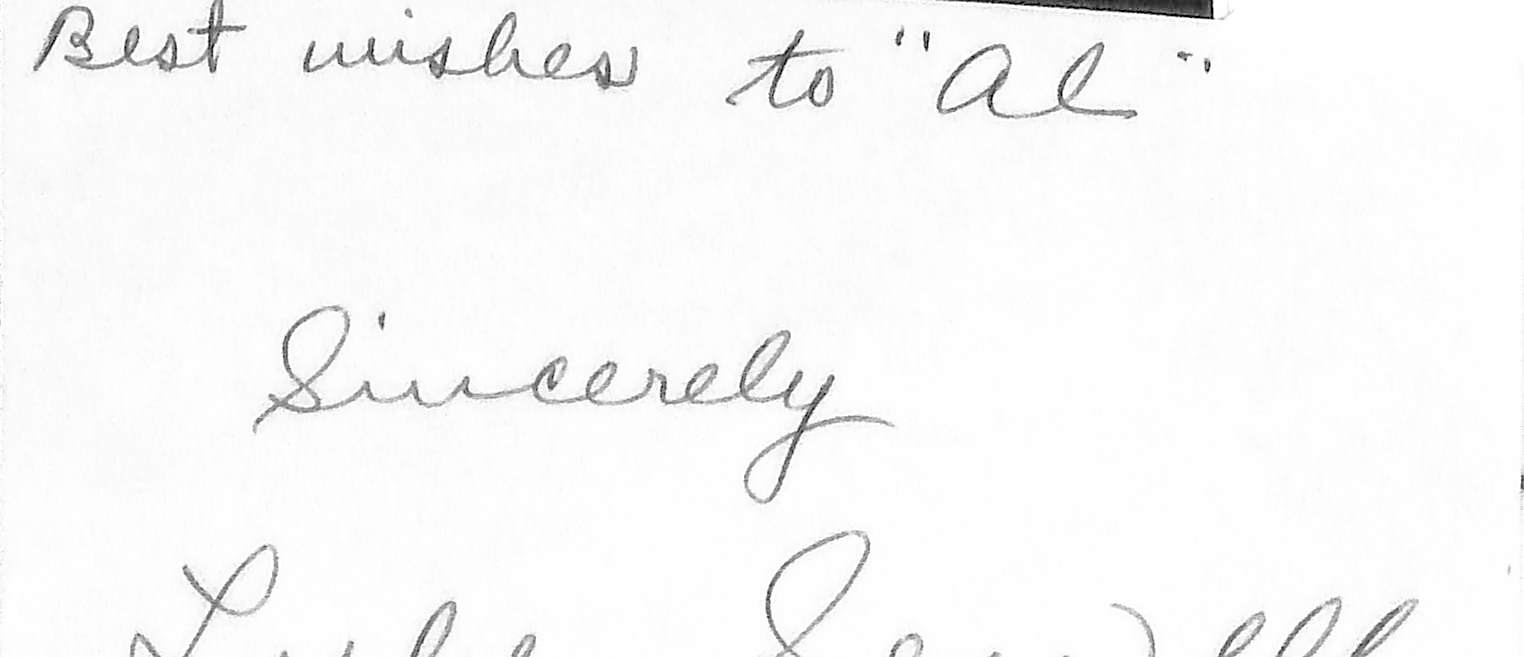 Best wishes to "Al"
Sincerely